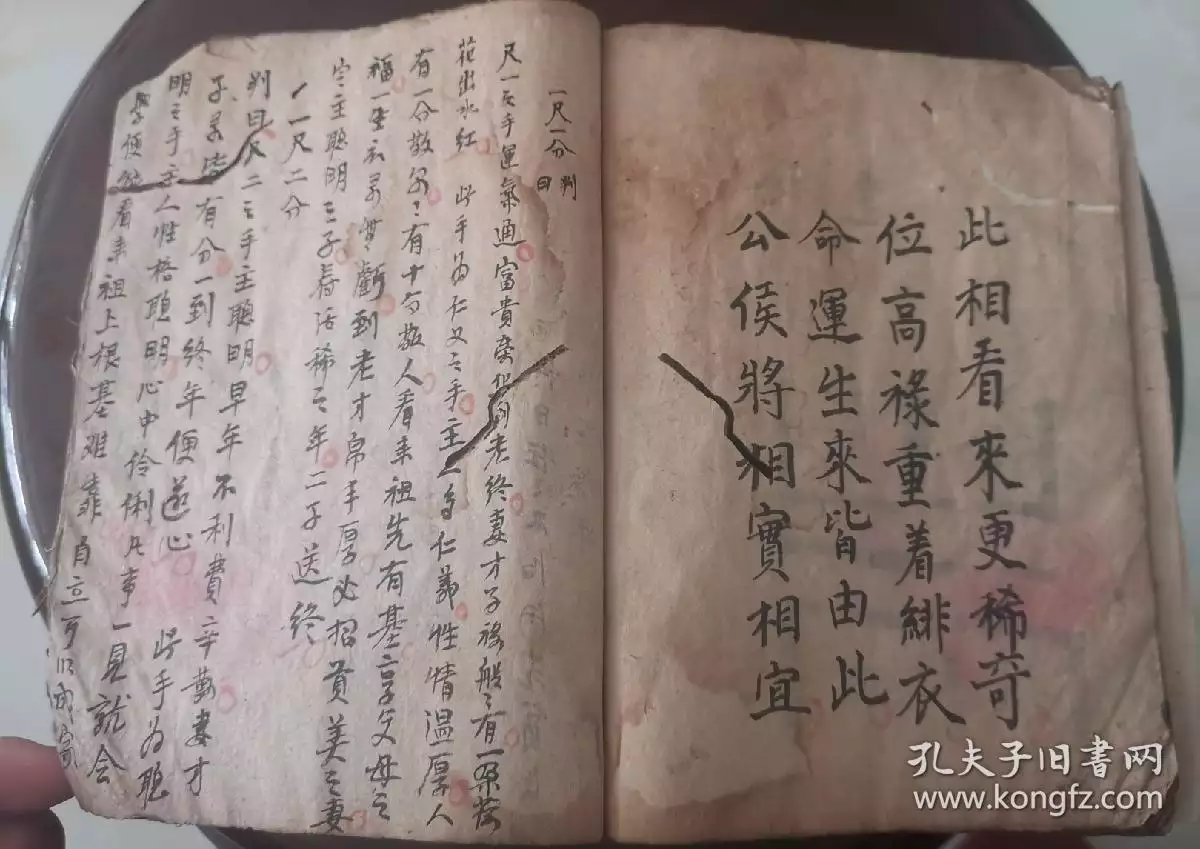 此相看來更稀奇
位高祿重着緋衣
命運生來皆由此
公侯將相實相宜
一尺一分 判曰
尺一之手運氣通富貴榮 到老終妻才子祿般〻有一朶荷
花出水紅 此手為仁义之手主 仁義性情溫厚人
有一分敬 〻有十分敬人看来祖先有基享父母之
福一生衣 虧到老才帛丰厚必招賢美之妻
宮主聰明之子春活稀之年二子送終
一尺二分
判曰尺二之手主聰明早年不利費辛勤妻才
子 有分一到終年便遂心 此手为聪
明之手主人性格聪明心中伶俐凡事一見就会
學便能看来祖上根基难靠自立
孔夫子旧书网
www.kongfz.com